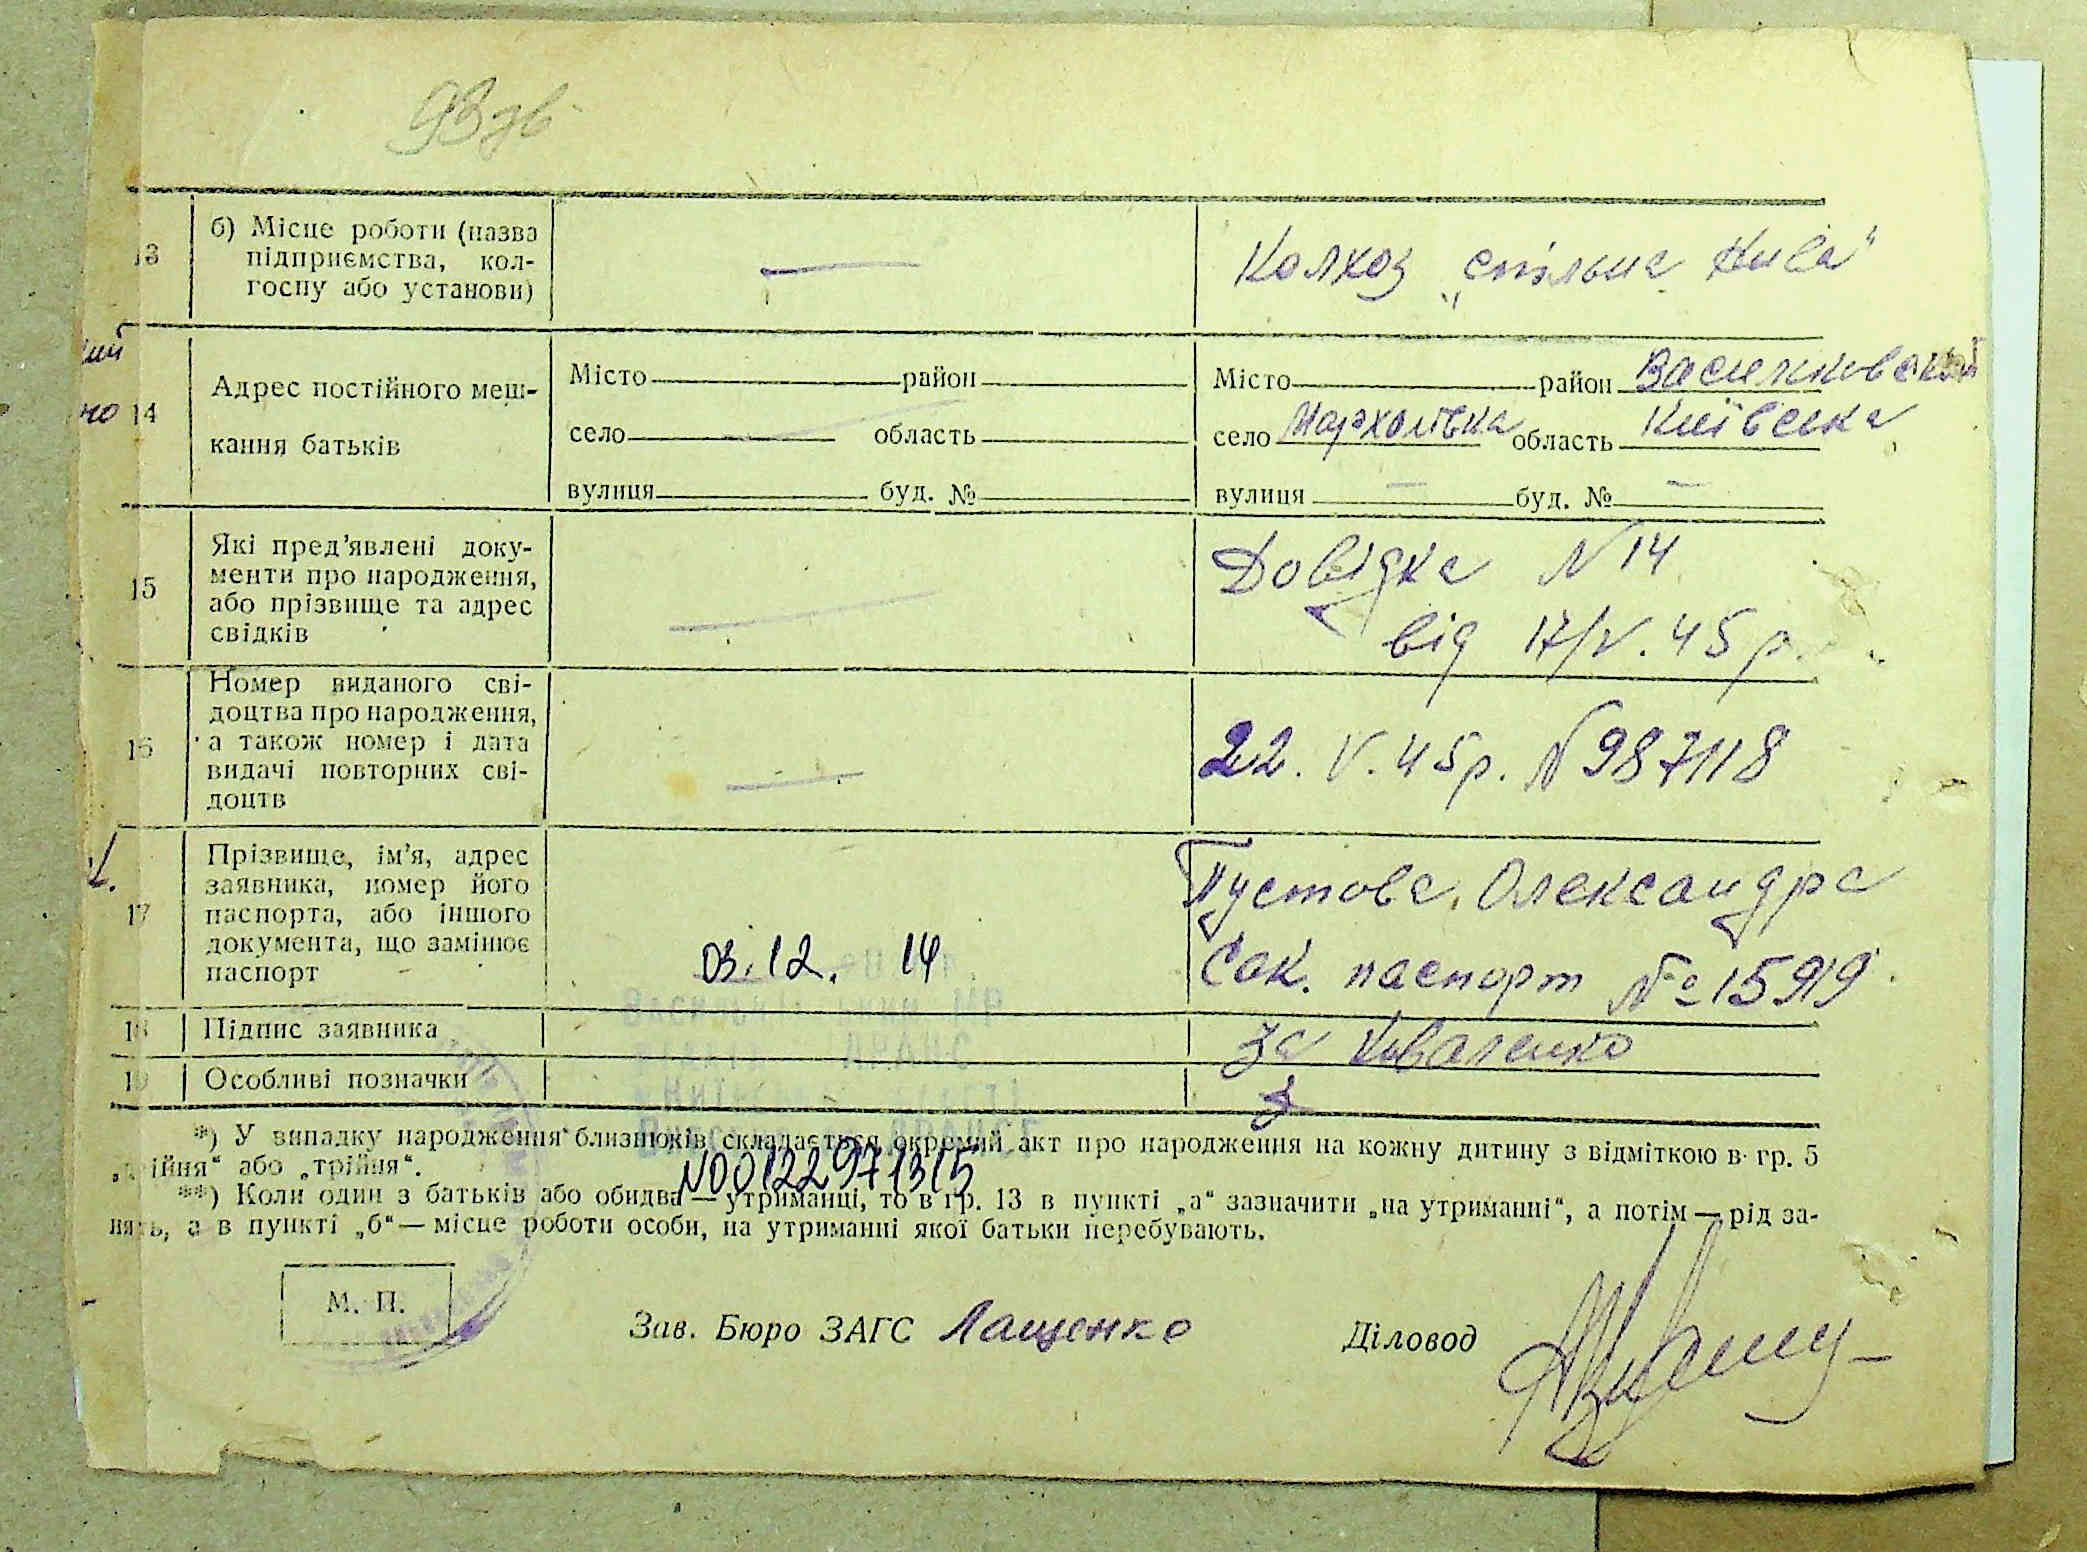 93 зв
13 б) Місце роботи (назва
підприємства, кол-
госпу або установи)
Колхоз „спільна Нива"
14 Адрес постійного меш-
кання батьків
Місто район
село область
вулиця буд. №
Місто район Васильковский
село Мархолівка область Київська
вулиця — буд. № —
15 Які пред'явлені доку-
менти про народження,
або прізвище та адрес
свідків
Довідка N 14
від 17/V. 45 р.
16 Номер виданого сві-
доцтва про народження,
а також номер і дата
видачі повторних сві-
доцтв
22. V. 45 р. N 987118
17 Прізвище, ім'я, адрес
заявника, номер його
паспорта, або іншого
документа, що замінює
паспорт
03.12. 14
Пустова Олександра
Сок. паспорт № 15919
18 Підпис заявника
за Коваленко
19 Особливі позначки
*) У випадку народження близнюків складається окремий акт про народження на кожну дитину з відміткою в гр. 5
„двійня" або „трійня".
N00122971315
**) Коли один з батьків або обидва — утриманці, то в гр. 13 в пункті „а" зазначити „на утриманні", а потім — рід за-
нять, а в пункті „б" — місце роботи особи, на утриманні якої батьки перебувають.
М. П.
Зав. Бюро ЗАГС Лащенко Діловод